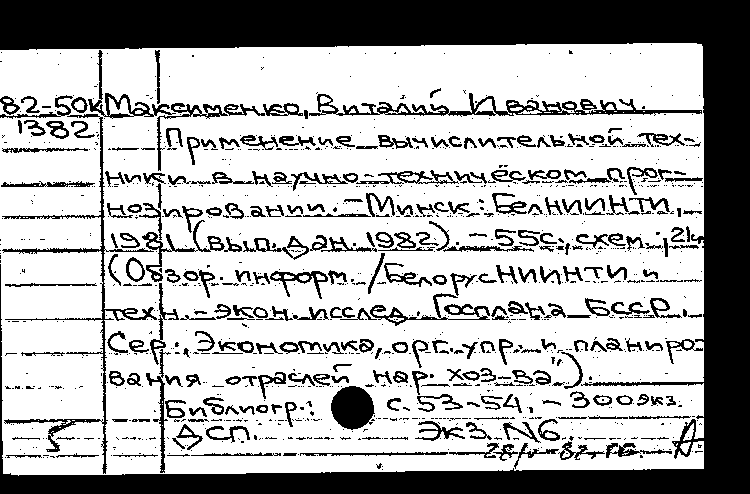 82-50к Максименко, Виталий Иванович.
1382
Применение вычислительной тех-
ники в научно-техническом прог-
нозировании. – Минск: БелНИИНТИ,
1981 (вып. дан. 1982). – 55с., схем.; 21
(Обзор. информ. / БелорусНИИНТИ и
техн.-экон. исслед. Госплана БССР.
Сер., Экономика, орг. упр. и планиро-
вания отраслей нар. хоз-ва").
Библиогр.: с. 53-54. – 300 экз.
5 ДСП. Экз. N6.
28/V-82. А